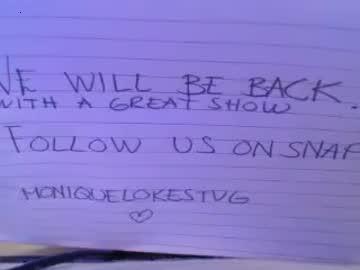 WE WILL BE BACK.
WITH A GREAT SHOW
FOLLOW US ON SNAP
MONIQUELOKESTVG